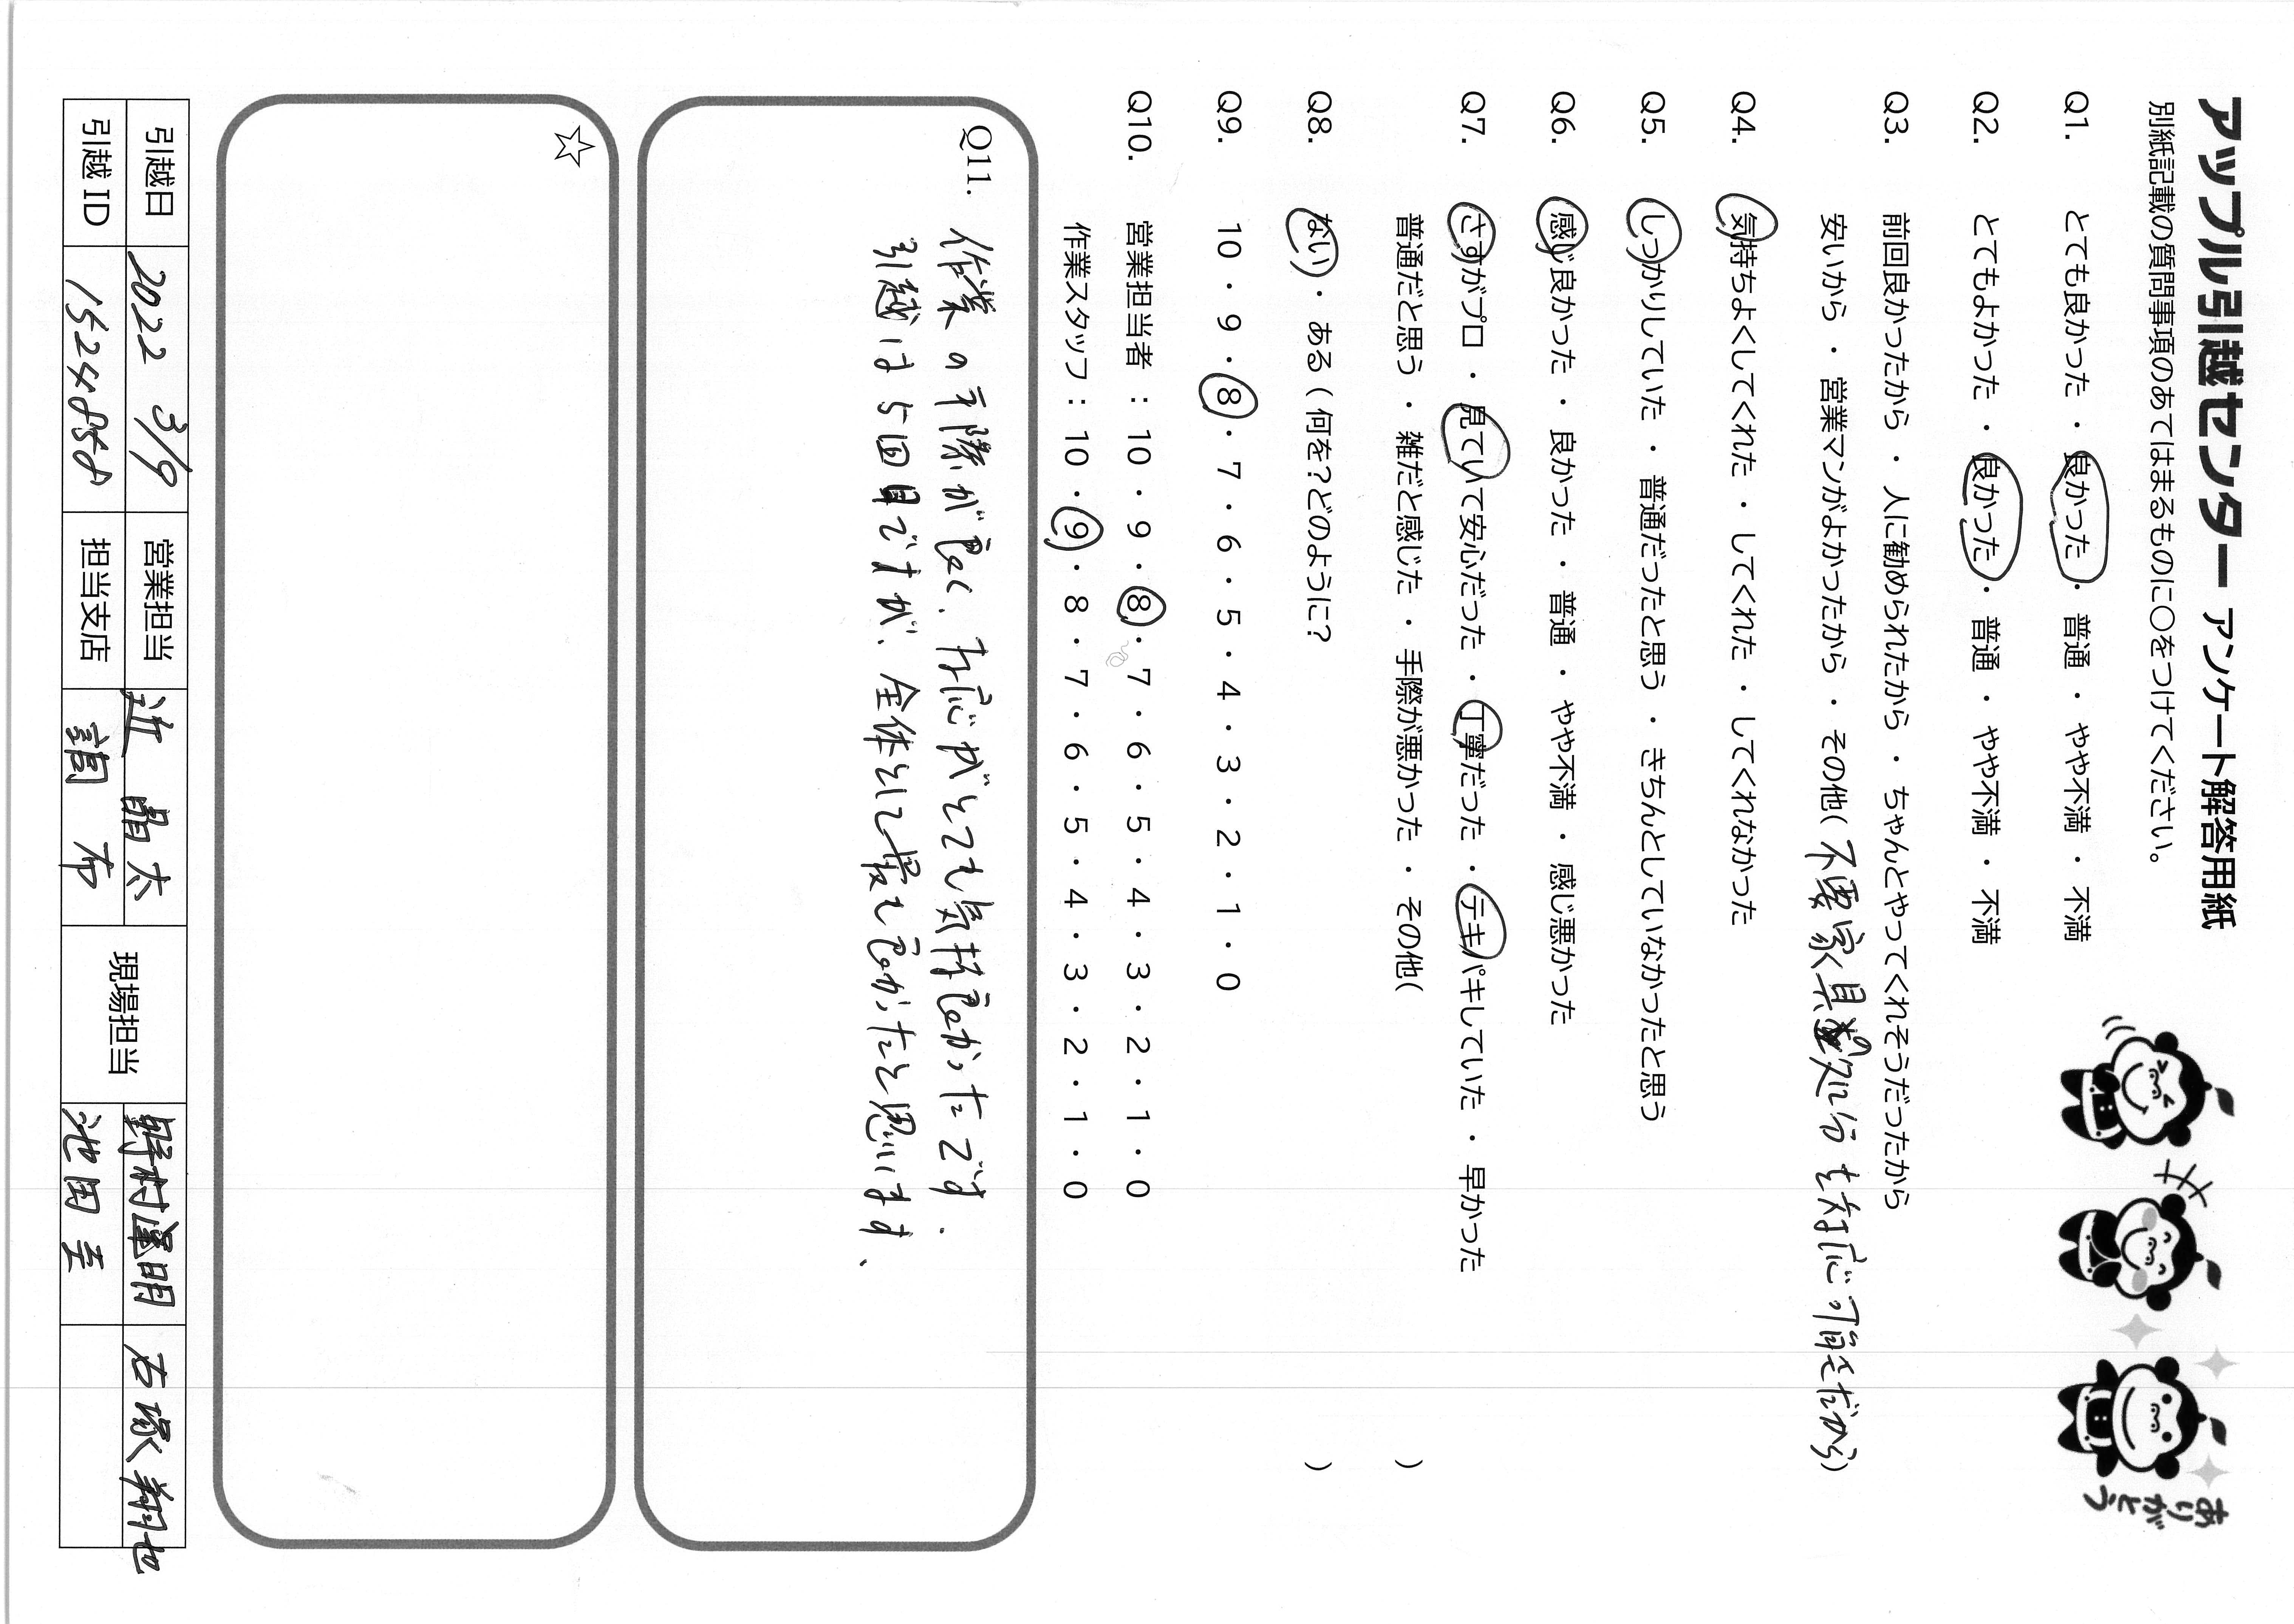 アップル引越センター アンケート解答用紙
別紙記載の質問事項のあてはまるものに○をつけてください。
Q1. とても良かった ・ 良かった ・ 普通 ・ やや不満 ・ 不満
Q2. とてもよかった ・ 良かった ・ 普通 ・ やや不満 ・ 不満
Q3. 前回良かったから ・ 人に勧められたから ・ ちゃんとやってくれそうだったから
安いから ・ 営業マンがよかったから ・ その他( 不要家具処分も対応可能だから)
Q4. 気持ちよくしてくれた ・ してくれた ・ してくれなかった
Q5. しっかりしていた ・ 普通だったと思う ・ きちんとしていなかったと思う
Q6. 感じ良かった ・ 良かった ・ 普通 ・ やや不満 ・ 感じ悪かった
Q7. さすがプロ ・ 見ていて安心だった ・ 丁寧だった ・ テキパキしていた ・ 早かった
普通だと思う ・ 雑だと感じた ・ 手際が悪かった ・ その他( )
Q8. ない ・ ある ( 何を?どのように? )
Q9. 10 ・ 9 ・ 8 ・ 7 ・ 6 ・ 5 ・ 4 ・ 3 ・ 2 ・ 1 ・ 0
Q10. 営業担当者 : 10 ・ 9 ・ 8 ・ 7 ・ 6 ・ 5 ・ 4 ・ 3 ・ 2 ・ 1 ・ 0
作業スタッフ : 10 ・ 9 ・ 8 ・ 7 ・ 6 ・ 5 ・ 4 ・ 3 ・ 2 ・ 1 ・ 0
Q11. 作業の手際が良く、対応がとても気持良かったです.
引越は5回目ですが、全体として最も良かったと思います、
☆
引越日 2022 3/9 営業担当 辻 晶太 現場担当 村蓮明 古塚翔也
引越 ID 担当支店 調布 池田 至
ありがとう